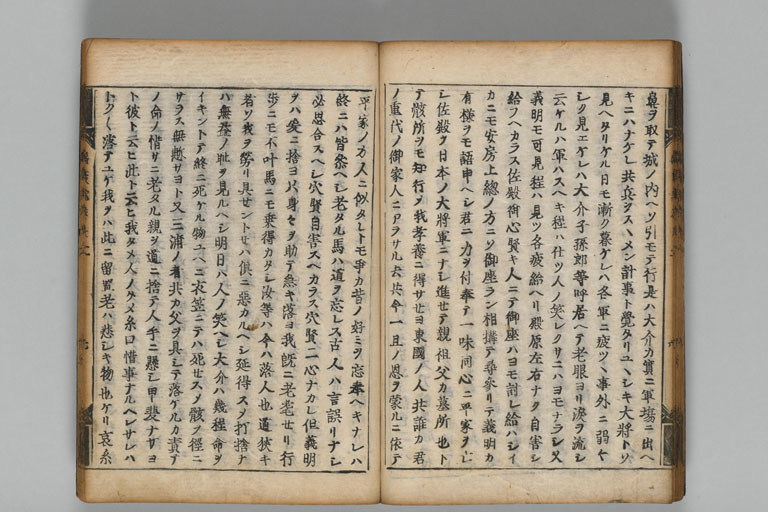 鼻ヲ取テ城ノ内ヘソ引モテ行是ハ大介カ實ニ軍場ニ出ヘ
キニハナケレ共兵ヲスヽメン計事ト覺タリユヽシキ大將トソ
見ヘタリケル日モ漸ク暮ケレハ各軍ニ疲ツヽ事外ニ弱ケ
シク見エケレハ大介子孫郎等呼居ヘテ老眼ヨリ涙ヲ流シ
云ケルハ軍ハスヘキ程ハ仕ツ人ノ笑レクサニハヨモナラシ又
義明モ可見程ハ見ツ各疲給ヘリ殿原左右ナク自害シ
給フヘカラス佐殿御心賢キ人ニテ御座ハヨモ討レ給ハシイ
カニモ安房上總ノ方ニソ御座ラン相搆テ尋參リテ義明カ
有樣ヲモ語申ヘシ君ニ力ヲ付奉テ一味同心ニ平家ヲ亡
シ佐殿ヲ日本ノ大將軍ニナシ進セテ親祖父カ墓所也ト
テ骸所ヲモ知行メ我孝養ニ得サセヨ東國ノ人共誰カ君
ノ重代ノ御家人ニアラサル去共今一旦ノ恩ヲ蒙ルニ依テ
平家ノ方人ニ似タレトモ爭カ昔ノ好ミヲ忘奉ヘキナレハ
終ニハ皆參ヘシ老タル馬ハ道ヲ忘レス古人ハ言誤リナシ
必思合スヘシ穴賢自害スヘカラス穴賢二心ナカレ但義明
ヲハ爰ニ捨ヨ 身 ヲ助テ急キ落ヨ我既ニ老耄せリ行
歩ニモ不叶馬ニモ乘得カタシ汝等ハ今ハ落人也道狹キ
者ソ我ヲ勞リ具せントせハ倶ニ惡カルヘシ延得スヲ打捨ナ
ハ無慙ノ耻ヲ見ルヘシ明日ハ人ノ笑ヘシ大介ハ幾程命ヲ
イキントテ終ニ死ケル物ユヘニ衣笠ニテハ死せスメ骸ヲ徑ニ
サラス無慙サヨト又三浦ノ者共カ父ヲ具シテ落ケルカ責テ
ノ命ノ惜サニ老タル親ヲ道ニ捨テ人手ニ懸シ甲斐ナサヨ
ト彼ト云ヒ此ト云ヒ我タメ人ノタメ糸口惜事ナルヘシサレハ
トク〳〵落テユケ我ヲハ此ニ留置老ハ悲シキ物也ケリ哀糸